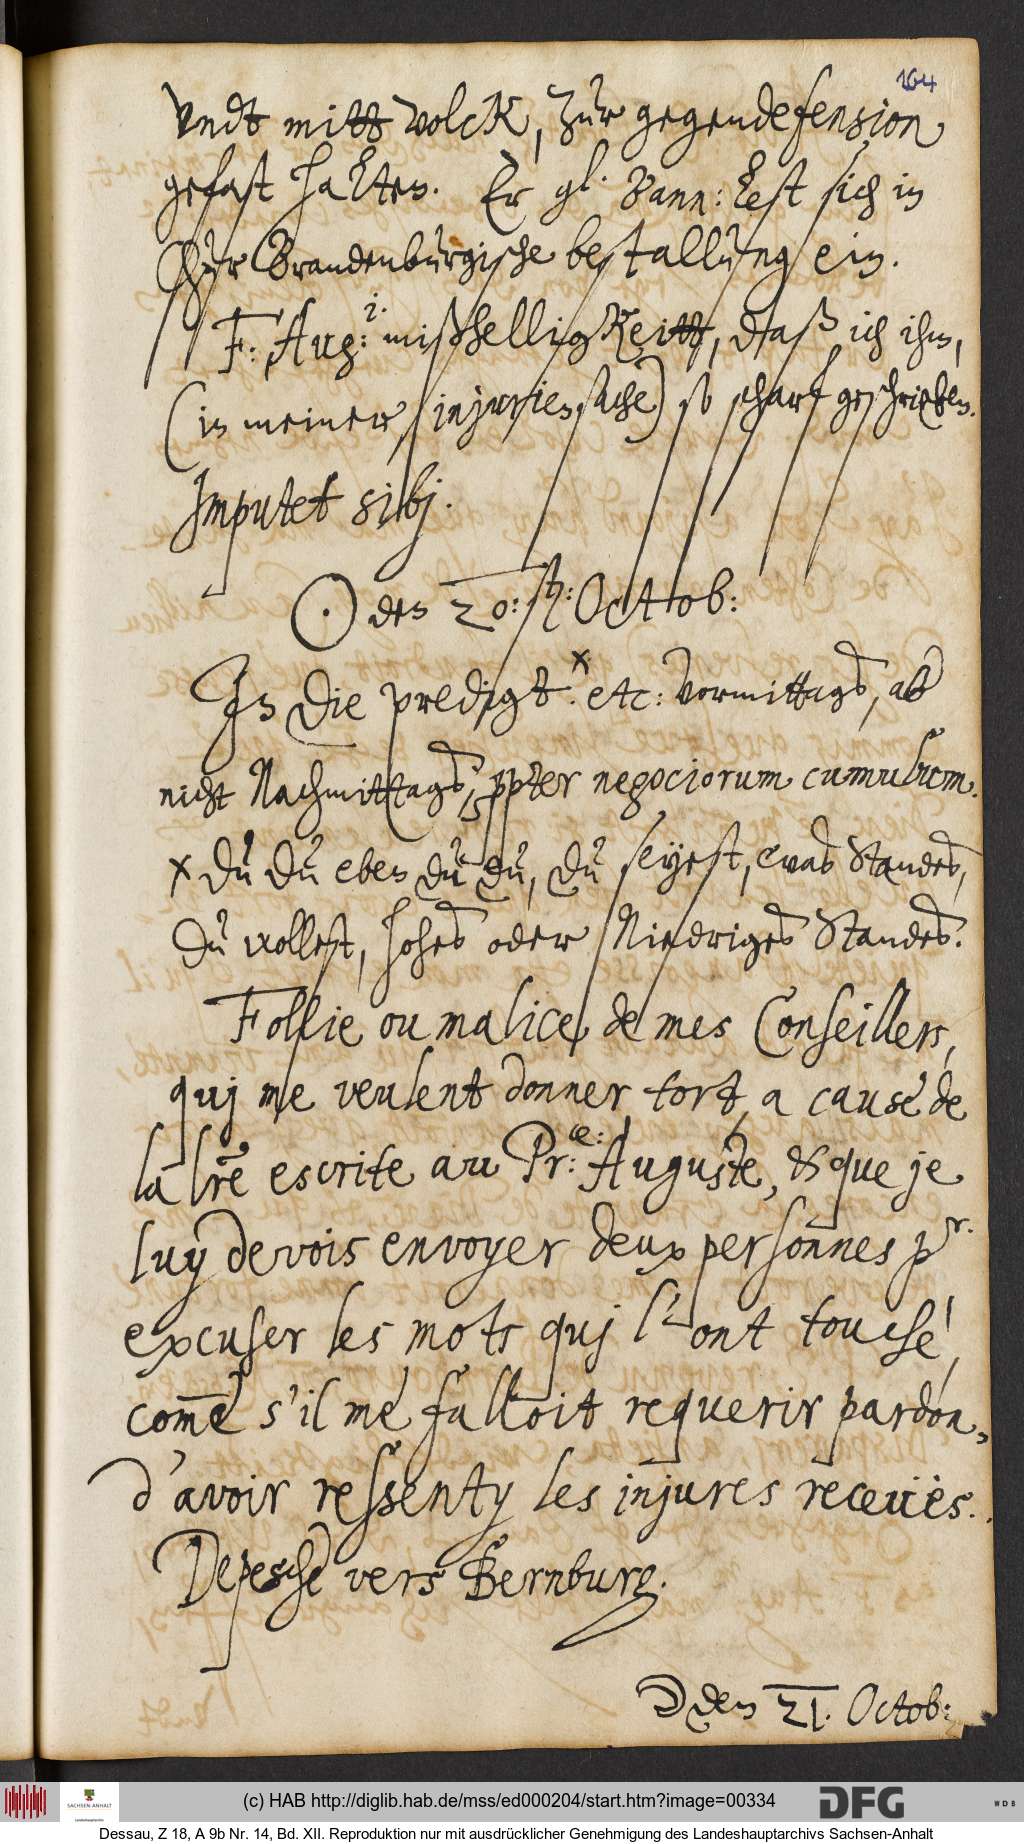 164
Vndt mitt volcK, zur gegendefension
gefast halten. Er gl. Bann: lest sich in
ChurBrandenburgische bestallung ein.
F: Aug:i. mißhelligKeitt, daß ich ihm,
(in meiner injuriensache) so scharf geschrieben.
Imputet sibj.
☉ den 20:sten: Octob:
In die predigt x. etc: vormittags, ab
nicht Nachmittags, ppter negociorum cumulum.
x Du du eben du du, du seyest, ewas Standes,
du wollest, hohes oder Niedriges Standes.
Follie ou malice de mes Conseillers,
quj me veulent donner tort, a cause de
la lre escrite au Pr:ce: Auguste, & que je
luy devois envoyer deux personnes pr.
excuser les mots quj l'ont touché,
come s'il me falloit requerir pardon,
d'avoir ressenty les injures receuës.
Depesche vers Bernburg.
☽ den 21. Octob:
(c) HAB http://diglib.hab.de/mss/ed000204/start.htm?image=00334
SACHSEN-ANHALT
DFG
WDB
Dessau, Z 18, A 9b Nr. 14, Bd. XII. Reproduktion nur mit ausdrücklicher Genehmigung des Landeshauptarchivs Sachsen-Anhalt